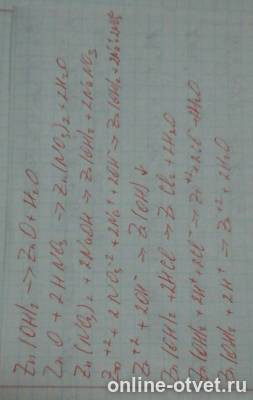 Zn(OH)2 → ZnO + H2O
ZnO + 2HNO3 → Zn(NO3)2 + H2O
Zn(NO3)2 + 2NaOH → Zn(OH)2 + 2NaNO3
Zn+2 + 2NO3-2 + 2Na+ + 2OH- → Zn(OH)2 + 2Na+
Zn+2 + 2OH- → Zn(OH)2↓
Zn(OH)2 + 2HCl → ZnCl2 + 2H2O
Zn(OH)2 + 2H+ + 2Cl- → Zn+2 + 2Cl- + 2H2O
Zn(OH)2 + 2H+ → Zn+2 + 2H2O
online-otvet.ru